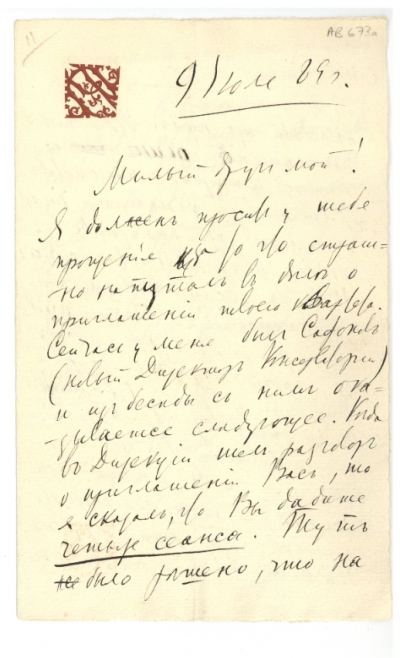 11
AB 673a
9 Июля 89 г.
Милый друг мой!
Я долженъ просить у тебя
прощенія за то что страш=
но напуталъ в
приглашеніи твоего Квартета.
Сейчасъ у меня былъ Сафоновъ
(новый Директоръ Консерваторіи)
и изъ беседы съ нимъ ока=
зывается следующее. Когда
въ Дирекціи шелъ разговоръ
о приглашеніи Васъ, то
я сказалъ, что Вы дадите
четыре сеанса. Тутъ
же было рѣшено, что на